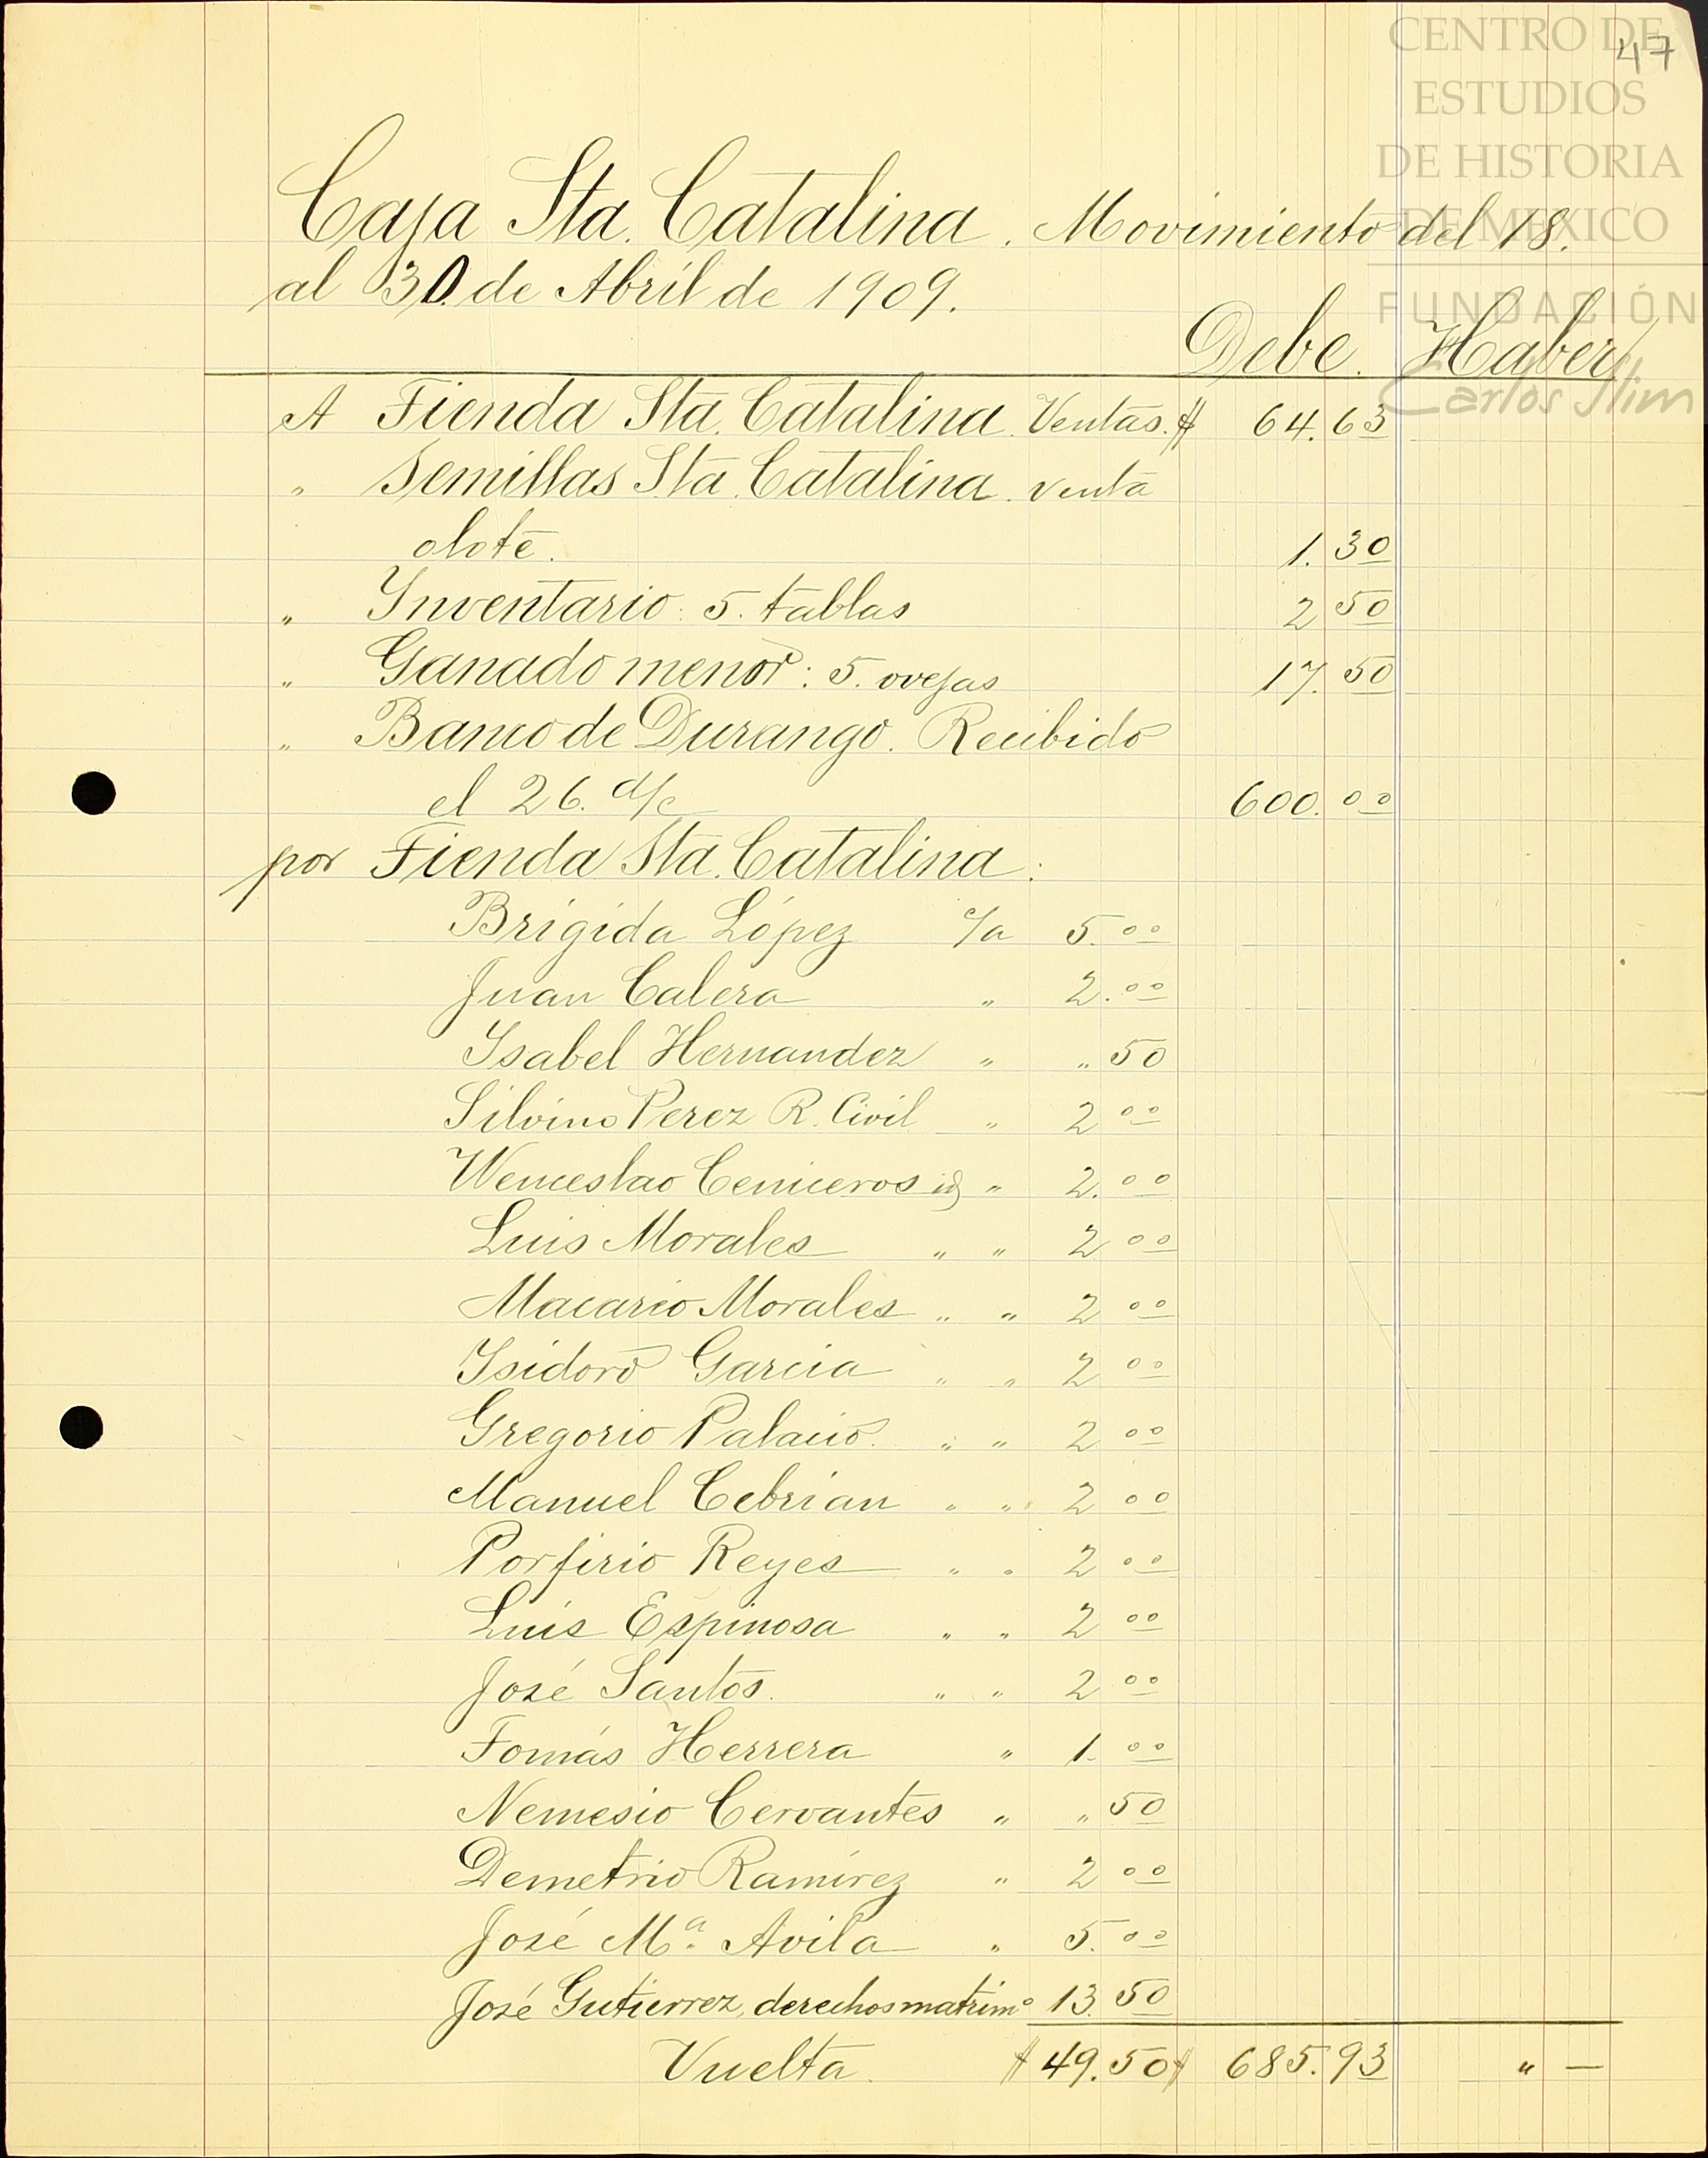 CENTRO DE
ESTUDIOS
DE HISTORIA
DE MEXICO
FUNDACIÓN
Carlos Slim
47
Caja Sta. Catalina. Movimiento del 18.
al 30 de Abril de 1909.
Debe. Haber
A Tienda Sta. Catalina. Ventas. $ 64.63
" Semillas Sta. Catalina. venta
olote. 1.30
" Inventario: 5. tablas 2 50
" Ganado menor: 5. ovejas 17.50
" Banco de Durango. Recibido
el 26. d/c 600.00
por Tienda Sta. Catalina:
Brígida López c/a 5.00
Juan Calera " 2.00
Isabel Hernandez " " 50
Silvino Perez R. Civil " 2 00
Wenceslao Ceniceros id " 2.00
Luis Morales " " 2 00
Macario Morales " " 2 00
Isidoro Garcia " " 2 00
Gregorio Palacio. " " 2 00
Manuel Cebrian " " 2 00
Porfirio Reyes " " 2 00
Luis Espinosa " " 2 00
José Santos. " " 2 00
Tomás Herrera " 1.00
Nemesio Cervantes " " 50
Demetrio Ramírez " 2 00
José Mª. Avila " 5.00
José Gutierrez, derechos matrimº 13.50
Vuelta. $ 49.50 $ 685.93 " —